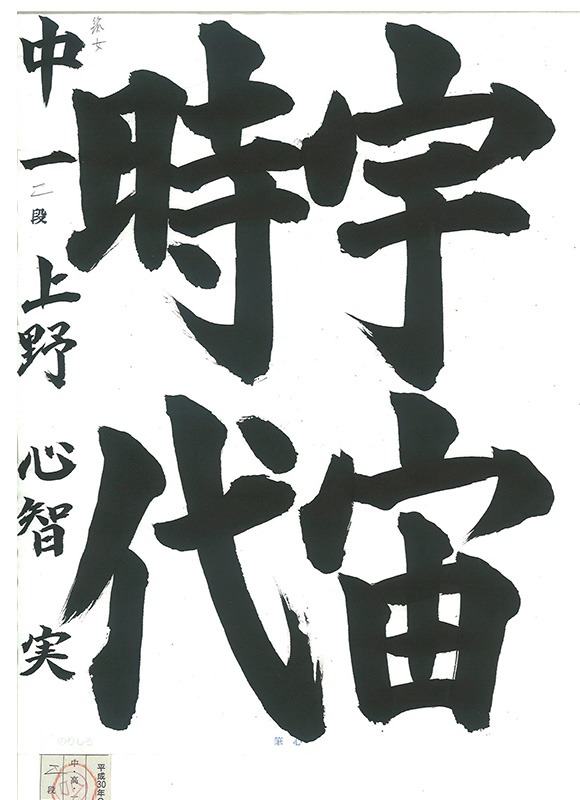 宇宙
時代
中一 二段 上野 心智実
のりしろ
筆心
平成30年
中・高・
二段